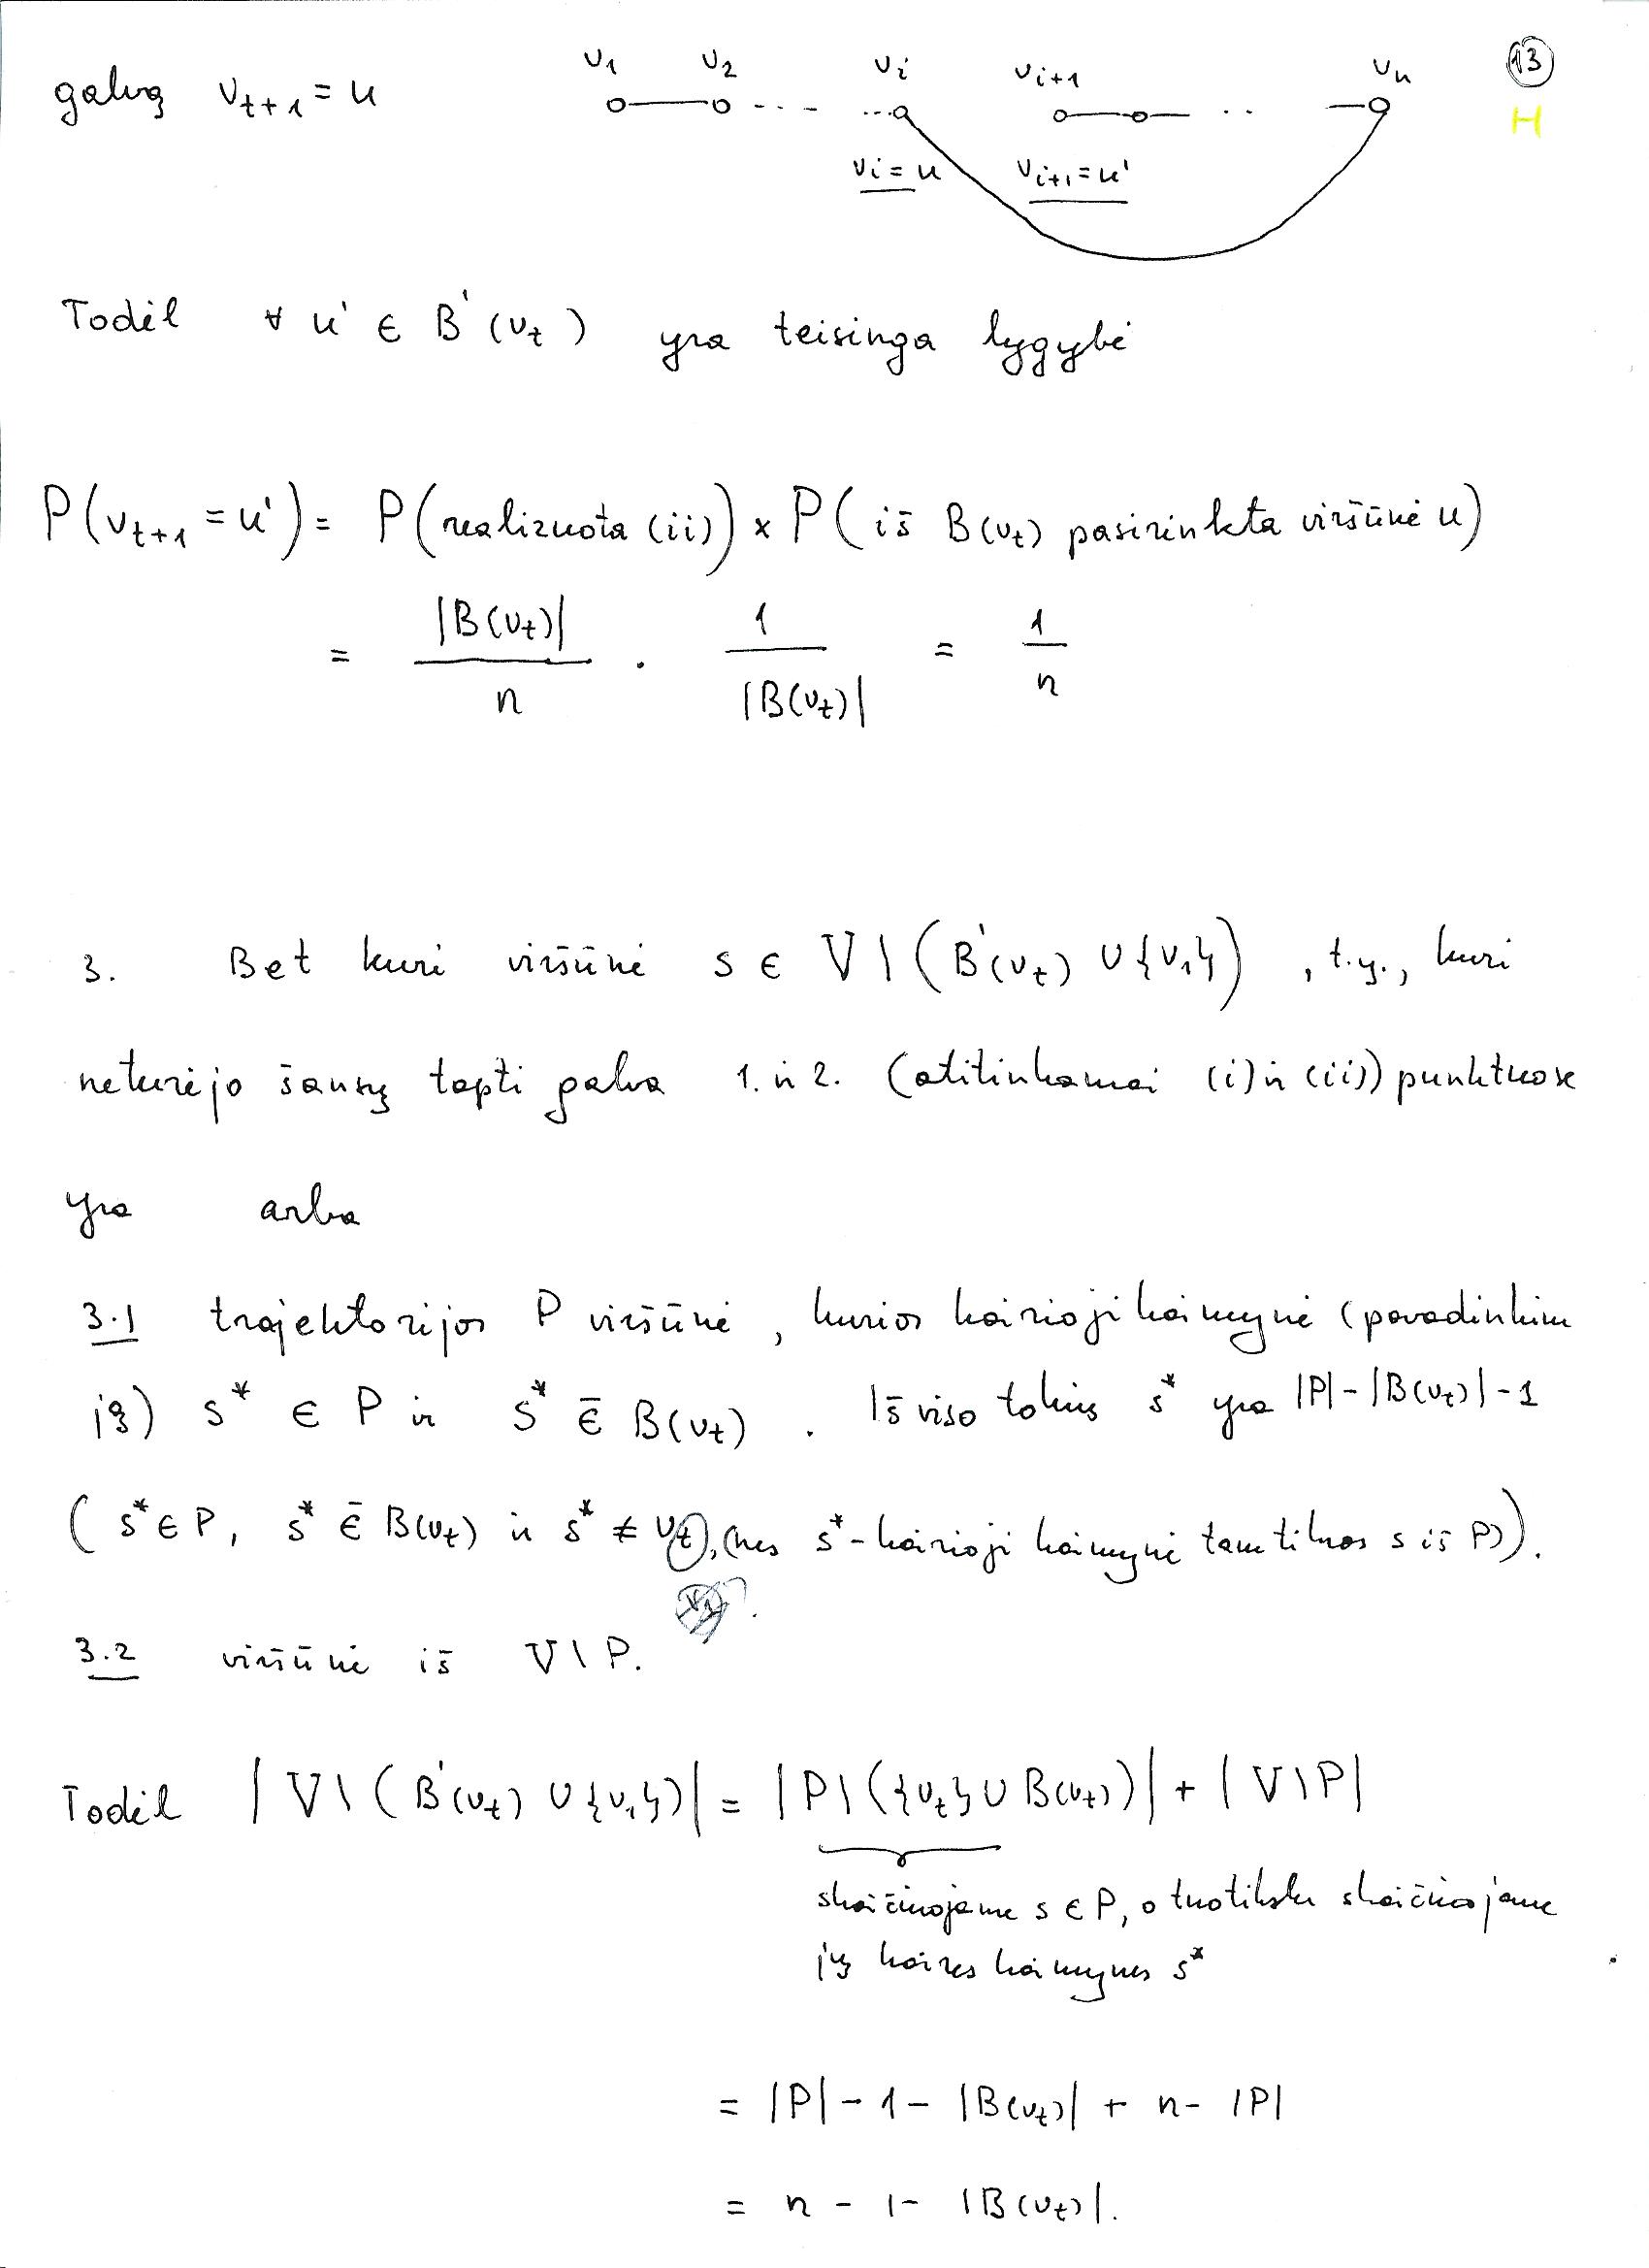 galvą v_{t+1} = u
v_1 v_2 v_i v_{i+1} v_n
v_i = u v_{i+1} = u'
13
H
Todėl ∀ u' ∈ B'(v_t) yra teisinga lygybė
P(v_{t+1} = u') = P(realizuota (ii)) × P(iš B(v_t) pasirinkta viršūnė u)
= |B(v_t)| / n · 1 / |B(v_t)| = 1 / n
3. Bet kuri viršūnė s ∈ V \ (B'(v_t) ∪ {v_1}), t.y., kuri
neturėjo šansų tapti galva 1. ir 2. (atitinkamai (i) ir (ii)) punktuose
yra arba
3.1 trajektorijos P viršūnė, kurios kairioji kaimynė (pavadinkim
ją) s* ∈ P ir s* ∈̄ B(v_t). Iš viso tokių s* yra |P| - |B(v_t)| - 1
(s* ∈ P, s* ∈̄ B(v_t) ir s* ≠ v_t, (nes s* - kairioji kaimynė tam tikros s iš P)).
3.2 viršūnė iš V \ P.
Todėl |V \ (B'(v_t) ∪ {v_1})| = |P \ ({v_t} ∪ B(v_t))| + |V \ P|
skaičiuojame s ∈ P, o tuotiksku skaičiuojame
jų kaires kaimynes s*
= |P| - 1 - |B(v_t)| + n - |P|
= n - 1 - |B(v_t)|.